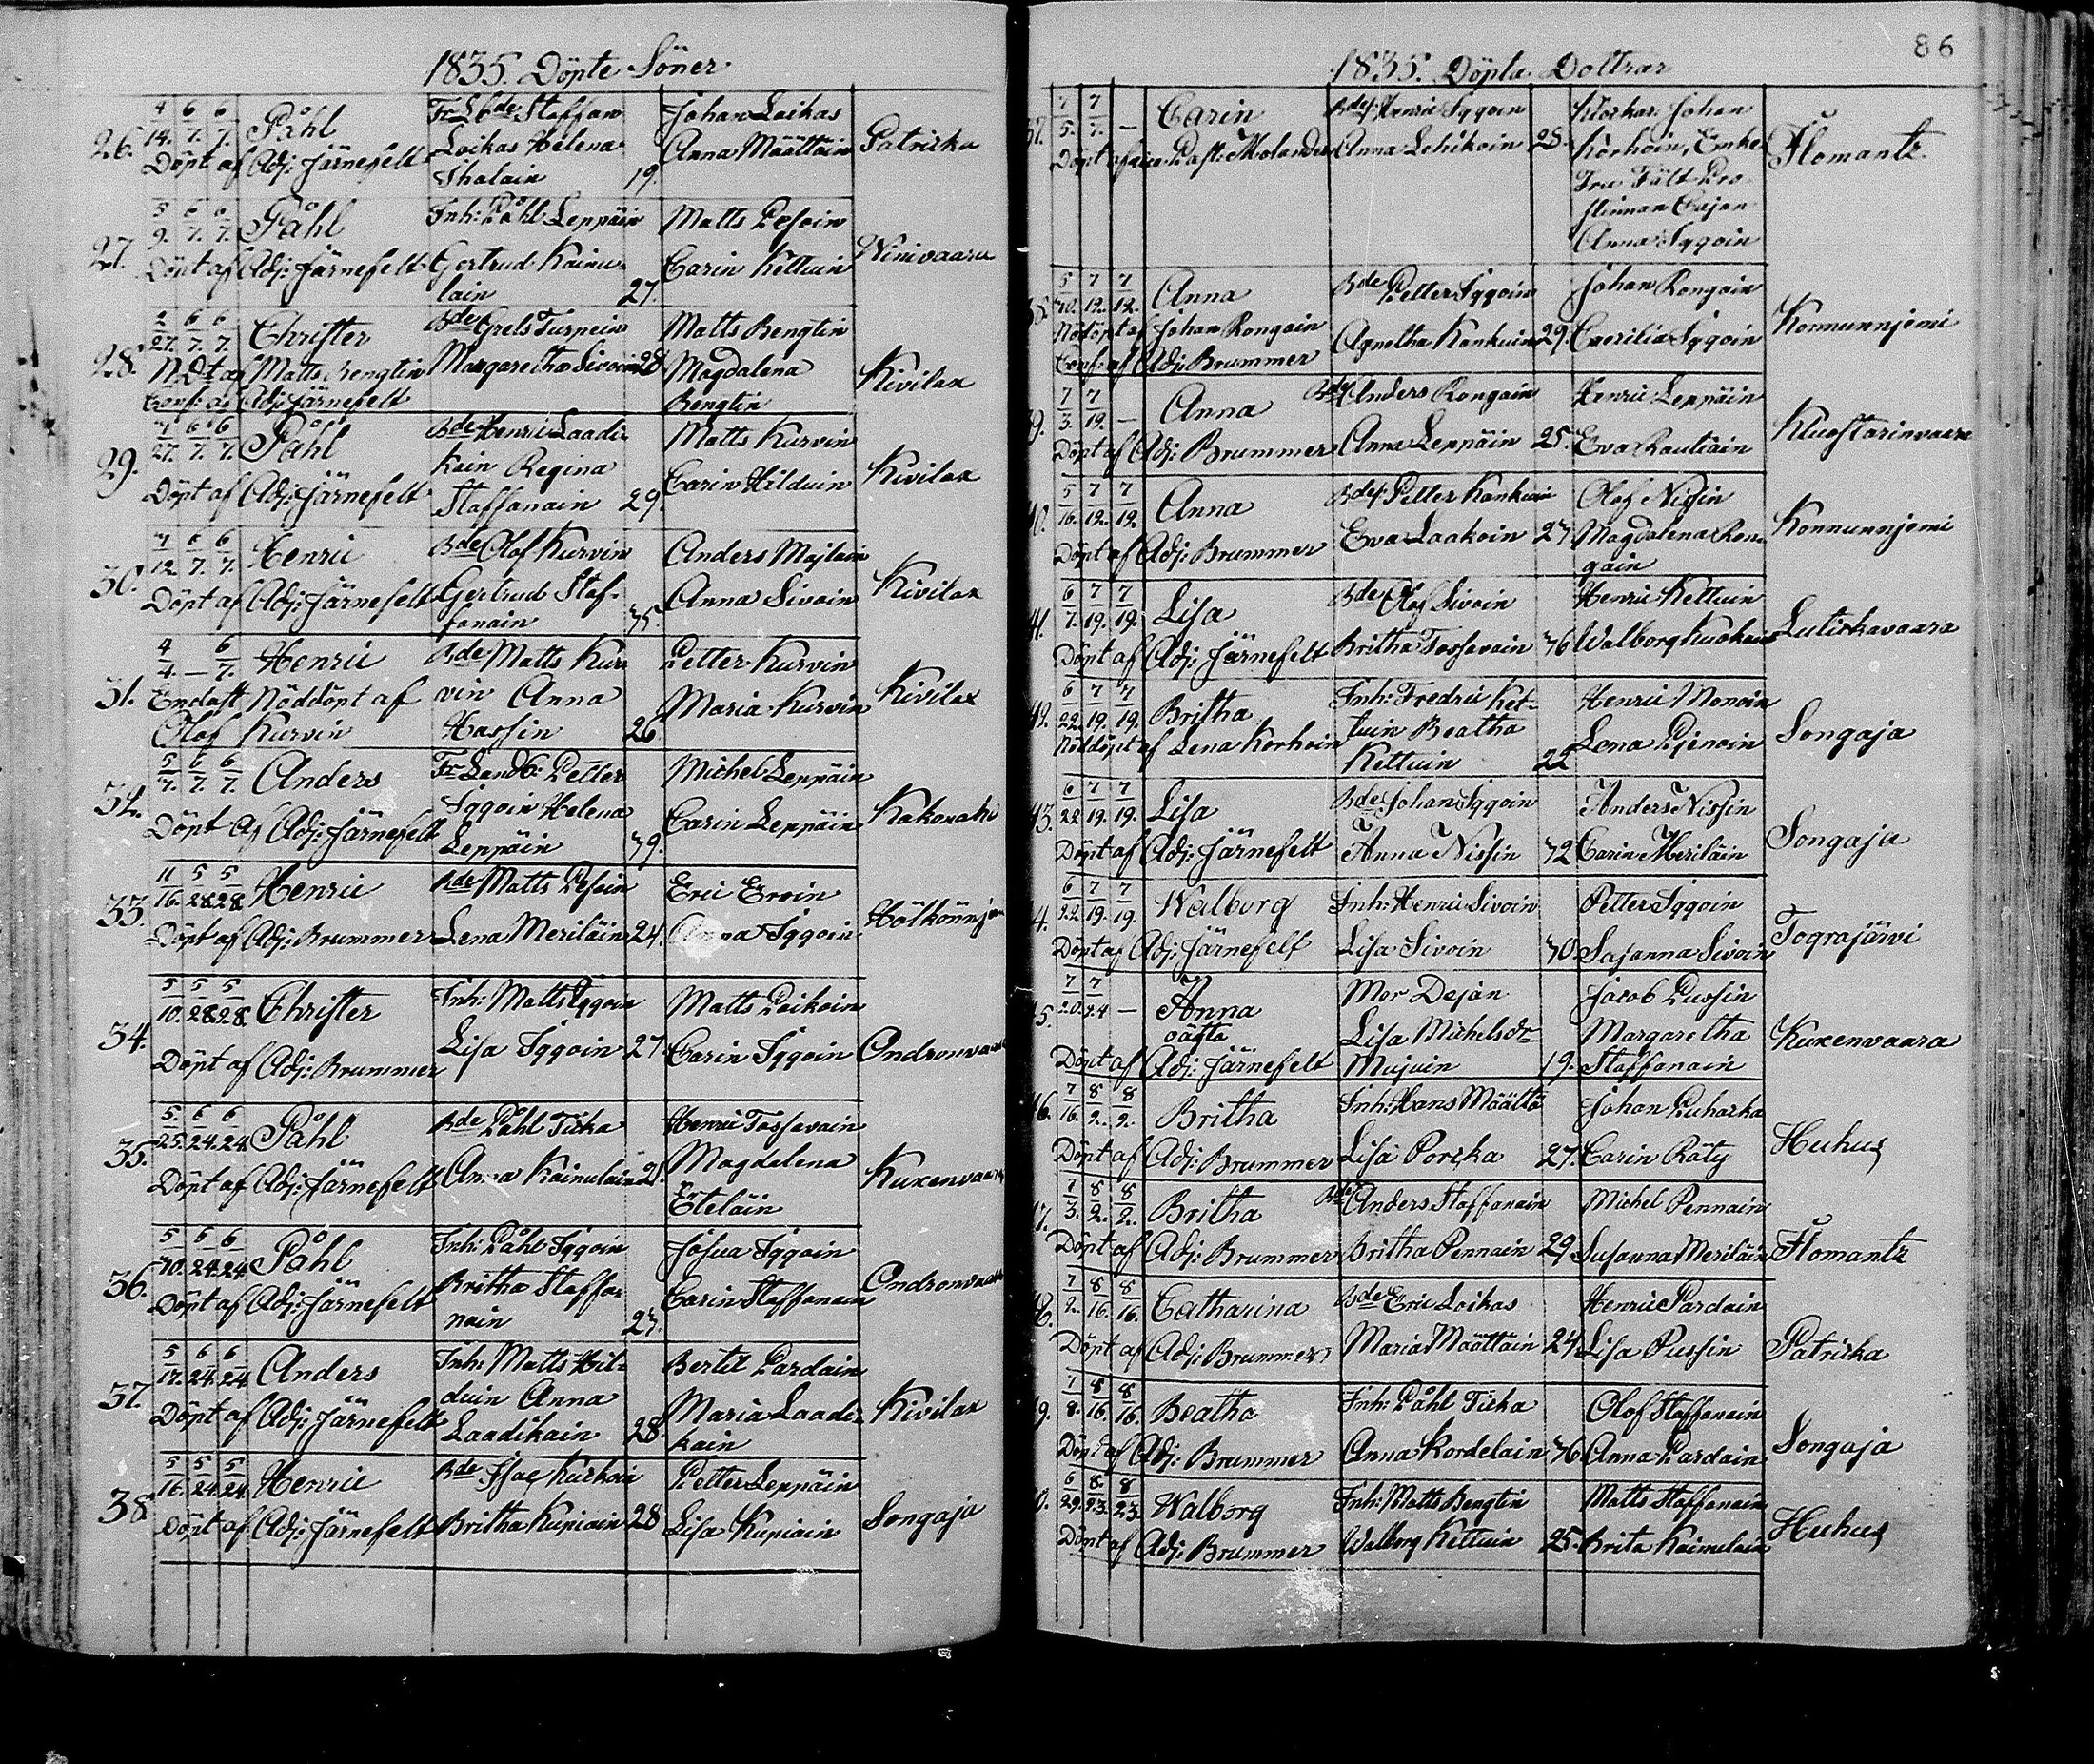 1835. Döpte Söner
26. 4/14. 6/7. 6/7. Påhl Fr. Lbde Staffan Johan Loikas Patricka
Loikas Helena Anna Määttäin
Döpt af Adj: Järnefelt Ihalain 19.
27. 5/9. 6/7. 6/7. Påhl Inh: Påhl Leppäin Matts Pesoin Winivaara
Döpt af Adj: Järnefelt Gertrud Kainu- Carin Kettuin
lain 27.
28. 2/27. 6/7. 6/7. Christer Bde Grels Turpein Matts Bengtin Kivilax
N.Dt af Matts Bengtin Margaretha Sivoin 28. Magdalena
Conf: af Adj: Järnefelt Bengtin
29. 27. 6/7. 6/7. Påhl Bde Henric Laadi- Matts Kurvin Kivilax
kain Regina Carin Hilduin
Döpt af Adj: Järnefelt Staffanain 29.
30. 12. 6/7. 6/7. Henric Bde Olof Kurvin Anders Majlain Kivilax
Döpt af Adj: Järnefelt Gertrud Staf- Anna Sivoin
fanain 35.
31. 4/4. — 6/7. Henric Bde Matts Kur- Petter Kurvin Kivilax
Endast Nöddöpt af vin Anna Maria Kurvin
Olof Kurvin Hassin 26.
32. 5/7. 6/7. 6/7. Anders Fr Landb: Petter Michel Leppäin Kakonaho
Iggoin Helena Carin Leppäin
Döpt af Adj: Järnefelt Leppäin 39.
33. 11/16. 5/28. 5/28. Henric Bde Matts Pesoin Eric Eroin
Döpt af Adj: Brummer Lena Meriläin 24. Anna Iggoin
34. 5/10. 5/28. 5/28. Christer Inh: Matts Iggoin Matts Poikoin
Döpt af Adj: Brummer Lisa Iggoin 27. Carin Iggoin
35. 5/25. 6/24. 6/24. Påhl Bde Påhl Ticka Henric Tossavain
Döpt af Adj: Järnefelt Anna Kainulain 21. Magdalena
Eteläin
36. 5/30. 6/24. 6/24. Påhl Inh: Påhl Iggoin Josua Iggoin
Döpt af Adj: Järnefelt Britha Staffa- Carin Staffanain
nain
37. 5/17. 6/24. 6/24. Anders Inh: Matts Hil- Bertil Pardain Kivilax
duin Anna Maria Laadi-
Döpt af Adj: Järnefelt Laadikain 28. kain
38. 5/16. 5/24. 5/24. Henric Bde Isac Kurkoin Petter Leppäin Songaja
Döpt af Adj: Järnefelt Britha Kupiain 28 Lisa Kupiain
86
1835. Döpta Dottrar
37. 7/5. 7/7. — Carin Bdes: Henric Iggoin Klockar: Johan Ilomantz
Döpt af vice Past: Molander Anna Lehikoin 28. Korhoin, Enke
Fru Fält Pro-
stinnan Cajan
Anna Iggoin
38. 5/30. 7/12. 7/12. Anna Bde Petter Iggoin Johan Rongain Konnunnjemi
Nödöpt af Johan Rongain Agnetha Kankuin 29. Caecilia Iggoin
Conf: af Adj: Brummer
39. 7/3. 7/19. — Anna Bdes Anders Rongain Henric Leppäin
Döpt af Adj: Brummer Anna Leppäin 25. Eva Rautiain
40. 5/16. 7/12. 7/12. Anna Bdes: Petter Kankuin Olof Nissin Konnunnjemi
Döpt af Adj: Brummer Eva Laakoin 27. Magdalena Ron-
gain
41. 6/7. 7/19. 7/19. Lisa Bde Olof Sivoin Henric Kettuin Lutickavaara
Döpt af Adj: Järnefelt Britha Tossavain 36 Walborg
42. 6/22. 7/19. 7/19. Britha Inh: Fredric Ket- Henric Monoin Songaja
Nöddöpt af Lena Korhoin tuin Beatha Lena
Kettuin 22
43. 6/22. 7/19. 7/19. Lisa Bde Johan Iggoin Anders Nissin Songaja
Döpt af Adj: Järnefelt Anna Nissin 32 Carin Meriläin
4. 6/22. 7/19. 7/19. Walborg Inh: Henric Sivoin Petter Iggoin Tograjärwi
Döpt af Adj: Järnefelt Lisa Sivoin 30. Sasanna Sivoin
5. 7/20. 7/24 — Anna Mor Dejan Jacob Pussin Kuxenvaara
oägta Lisa Michelsdr Margaretha
Döpt af Adj: Järnefelt Mujuin 19. Staffanain
46. 7/16. 8/2. 8/2. Britha Inh: Hans Määttä Johan Puhacka Huhus
Döpt af Adj: Brummer Lisa Porcka 27. Carin Räty
7. 7/3. 8/2. 8/2. Britha Bde Anders Staffanain Michel Pennain Ilomantz
Döpt af Adj: Brummer Britha Pennain 29. Susanna Meriläin
7/2. 8/16. 8/16. Catharina Bde Eric Loikas Henric Pardain Patricka
Döpt af Adj: Brummer Maria Määttäin 24. Lisa Pussin
9. 7/8. 8/16. 8/16. Beatha Inh: Påhl Ticka Olof Staffanain Songaja
Döpt af Adj: Brummer Anna Kordelain 36 Anna Pardain
0. 6/29. 8/23. 8/23. Walborg Inh: Matts Bengtin Matts Staffanain Huhus
Döpt af Adj: Brummer Walborg Kettuin 25. Brita Kainulain